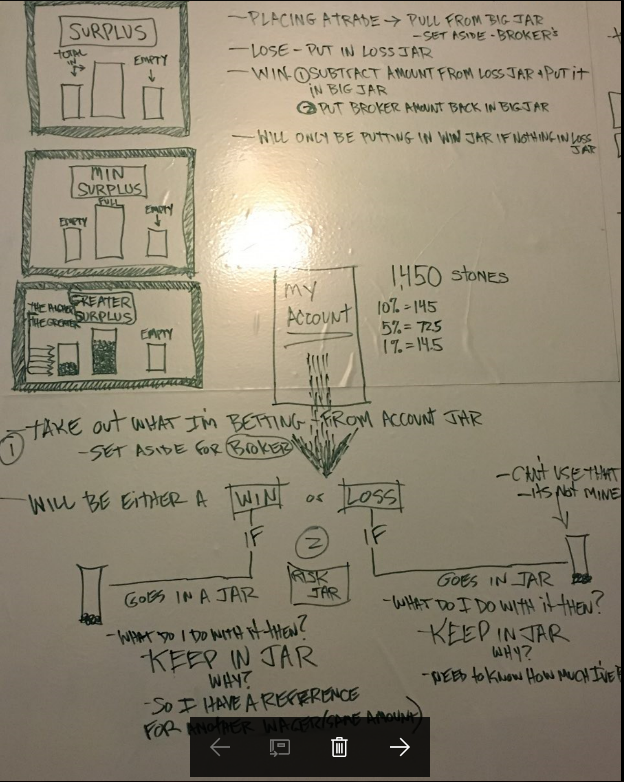 SURPLUS
TOTAL IN
EMPTY
MIN SURPLUS
FULL
EMPTY
EMPTY
GREATER SURPLUS
THE HIGHER
THE GREATER
EMPTY
- PLACING A TRADE → PULL FROM BIG JAR
- SET ASIDE - BROKER'S
- LOSE - PUT IN LOSS JAR
- WIN ① SUBTRACT AMOUNT FROM LOSS JAR + PUT it
IN BIG JAR
② PUT BROKER AMOUNT BACK IN BIG JAR
- WILL ONLY BE PUTTING IN WIN JAR IF NOTHING IN LOSS
JAR
MY
ACCOUNT
1,450 STONES
10% = 145
5% = 72.5
1% = 14.5
① - TAKE OUT WHAT I'M BETTING - FROM ACCOUNT JAR
- SET ASIDE FOR BROKER
- WILL BE EITHER A WIN or LOSS
IF ② IF
- CAN'T USE THAT
- ITS NOT MINE
GOES IN A JAR
RISK JAR
GOES IN JAR
- WHAT DO I DO WITH it THEN?
KEEP IN JAR
WHY?
- SO I HAVE A REFERENCE
FOR ANOTHER WAGER/SAME AMOUNT)
- WHAT DO I DO WITH it THEN?
- KEEP IN JAR
WHY?
- NEED to KNOW HOW MUCH I'VE